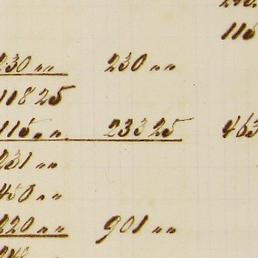 115
230 " " 230 " "
118 25
115 " " 233 25 463
231 " "
450 " "
220 " " 901 " "